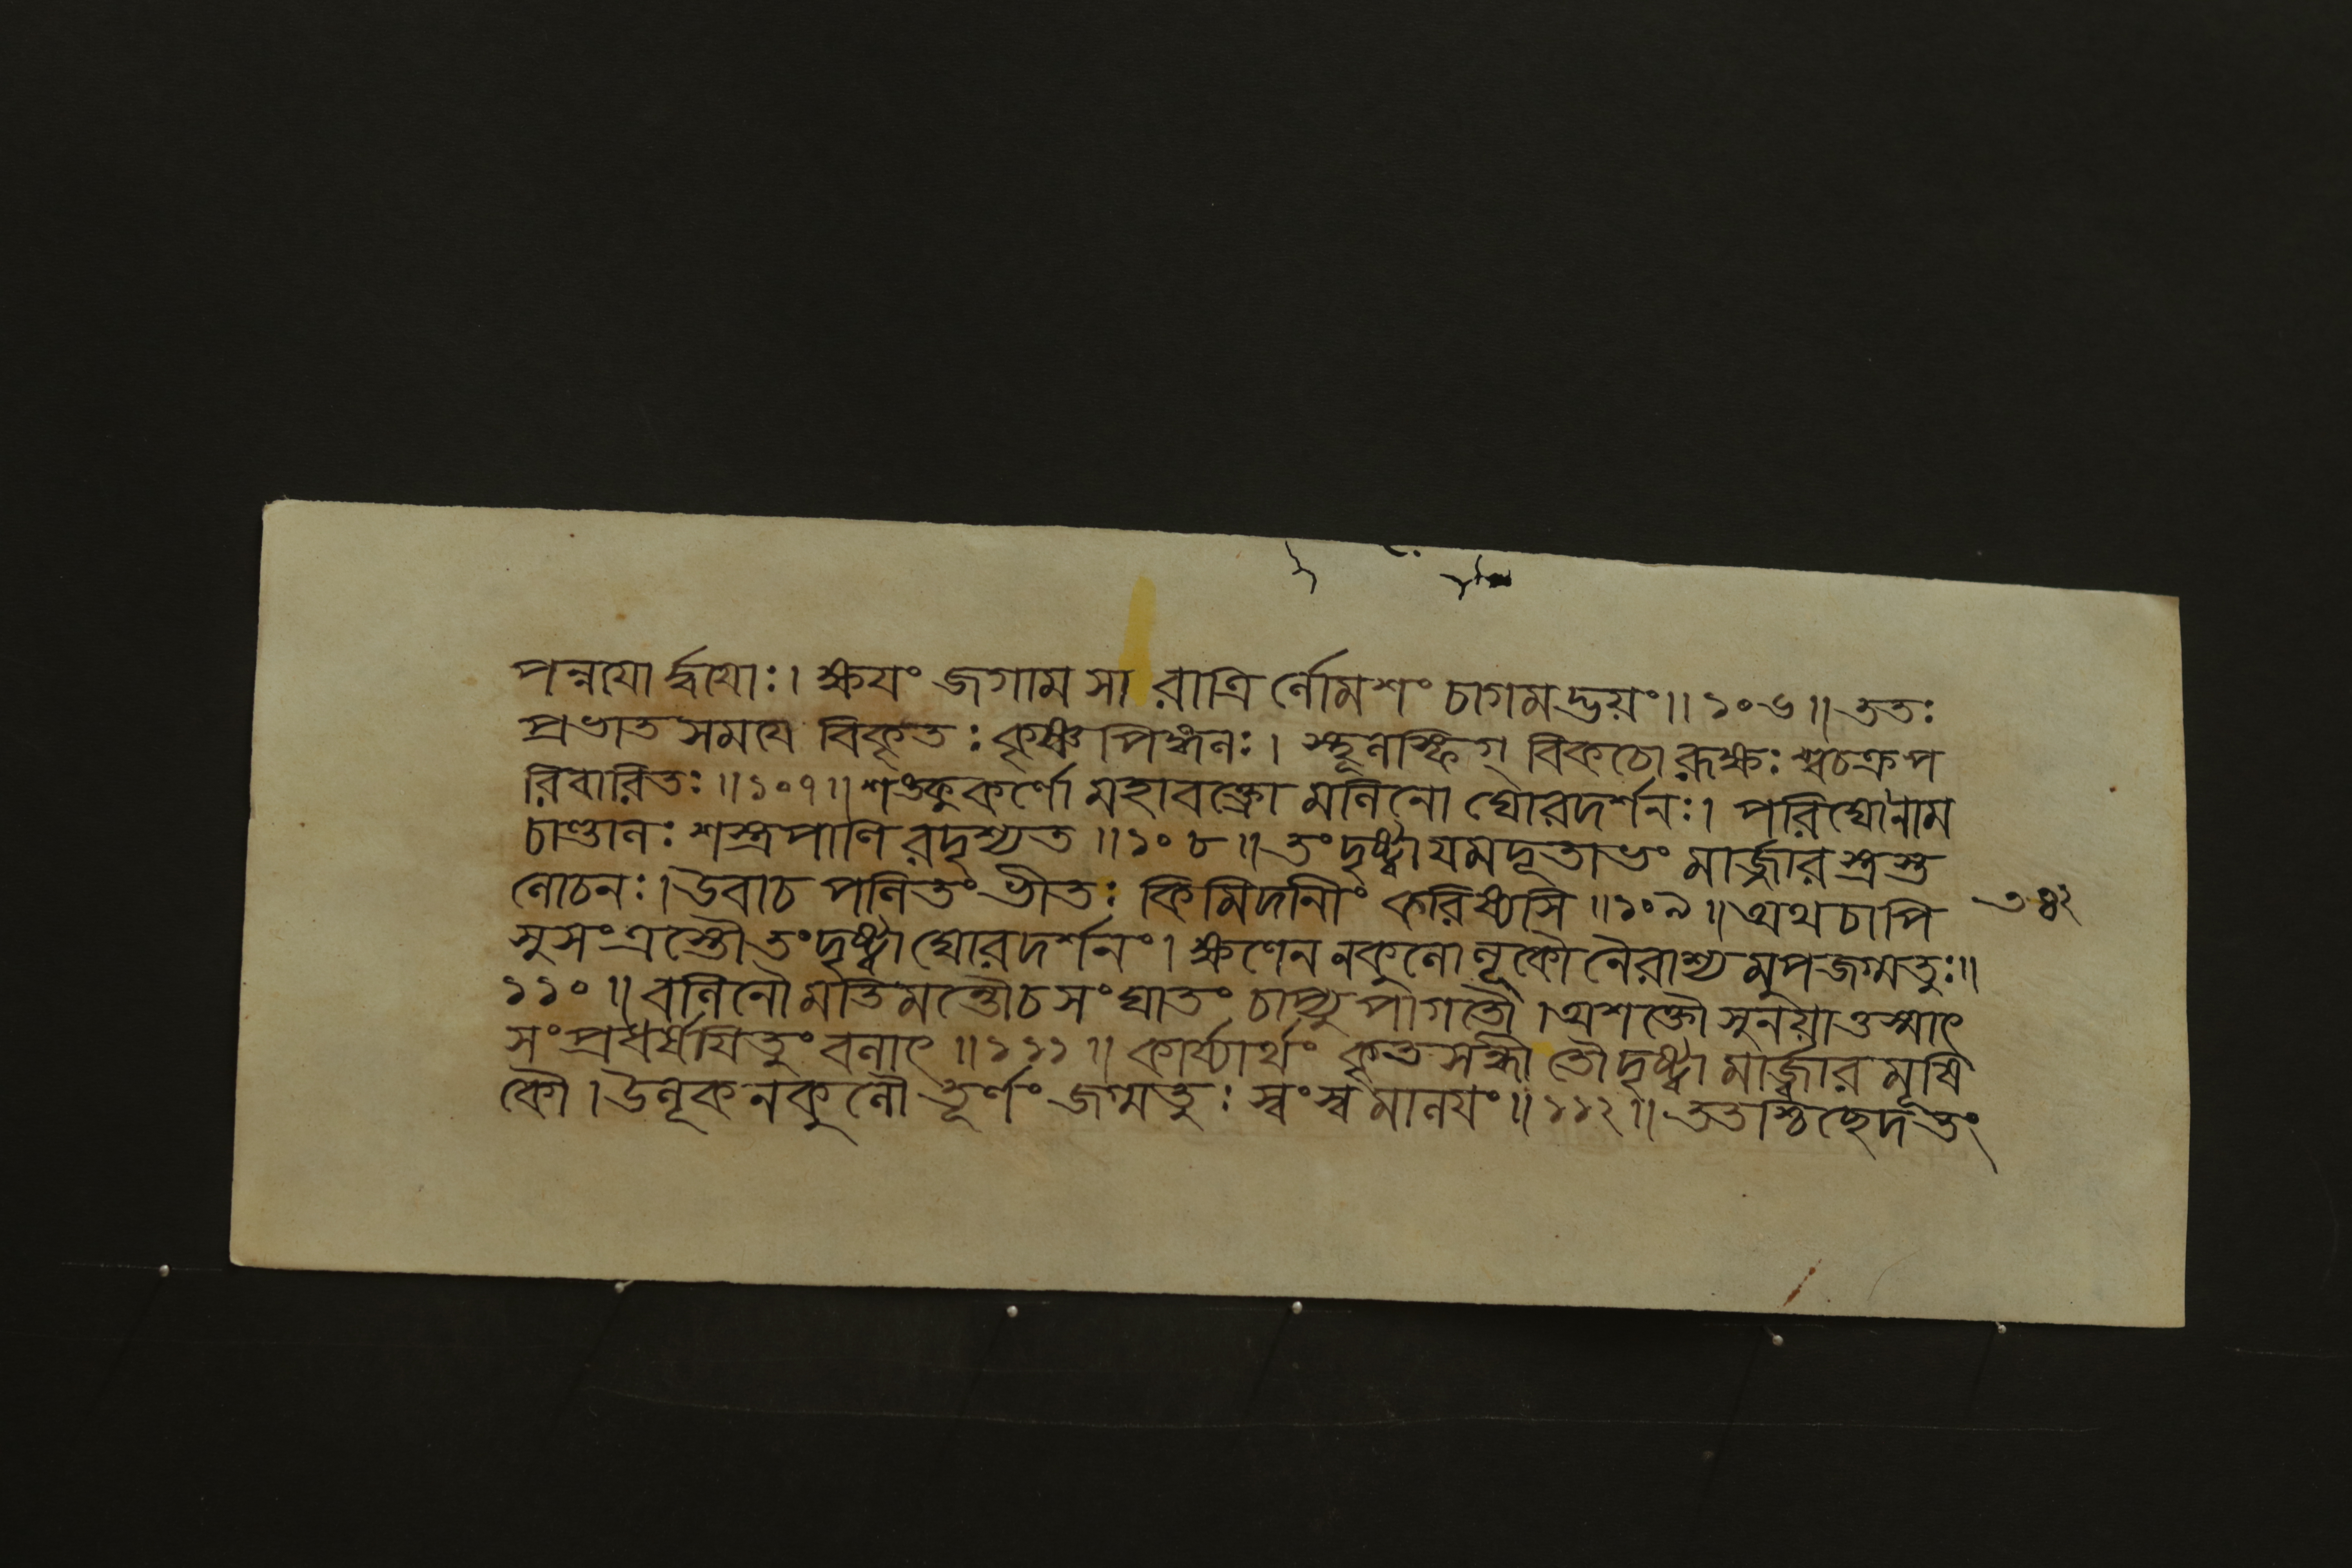 পন্নযোর্দ্ধযোঃ। ক্ষযং জগাম সা রাত্রির্নোমশং চাগমদ্ভয়ং॥১০৬॥ততঃ
প্রভাতসমযে বিকৃতঃ কৃষ্ণপিঙ্গনঃ। স্থূনস্ফিগ্ বিকচো রূক্ষঃ শ্বচক্রপ
রিবারিতঃ॥১০৭॥শঙ্কুকর্ণো মহাবক্ত্রো মনিনো ঘোরদর্শনঃ। পরিঘোনাম
চাণ্ডানঃ শস্ত্রপাণিরদৃশ্যত॥১০৮॥তংদৃষ্ট্বাযমদূতাভং মার্জ্জারস্ত্রস্ত
নোচনঃ।উবাচ পনিতং ভীতঃ কিমিদানীং করিষ্যসি॥১০৯॥অথচাপি
সুসংত্রস্তৌতংদৃষ্ট্বা ঘোরদর্শনং। ক্ষণেন নকুনোনূকৌ নৈরাশ্যমুপজগ্মতুঃ॥
১১০॥বনিনৌমতিমন্তৌচ সংঘাতং চাপ্যুপাগতৌ।অশক্তৌসুনয়াত্তস্মাৎ
সংপ্রধর্ষযিতুং বনাৎ॥১১১॥ কার্য্যার্থং কৃতসন্ধী তৌদৃষ্ট্বা মার্জ্জারমূষি
কৌ।উনূকনকুনৌ তূর্ণং জগ্মতুঃ স্বংস্বমানযং॥১১২॥ততশ্চিছেদতং
৩৪২